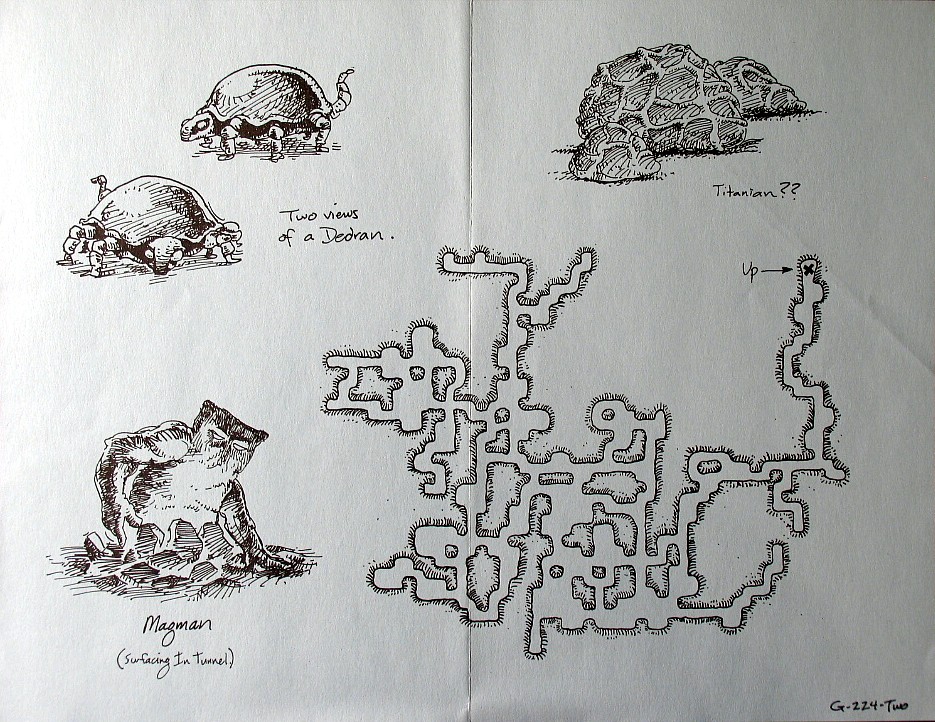 Two views
of a Dedran.
Titanian??
Up
Magman
(Surfacing In Tunnel)
G-224-Two